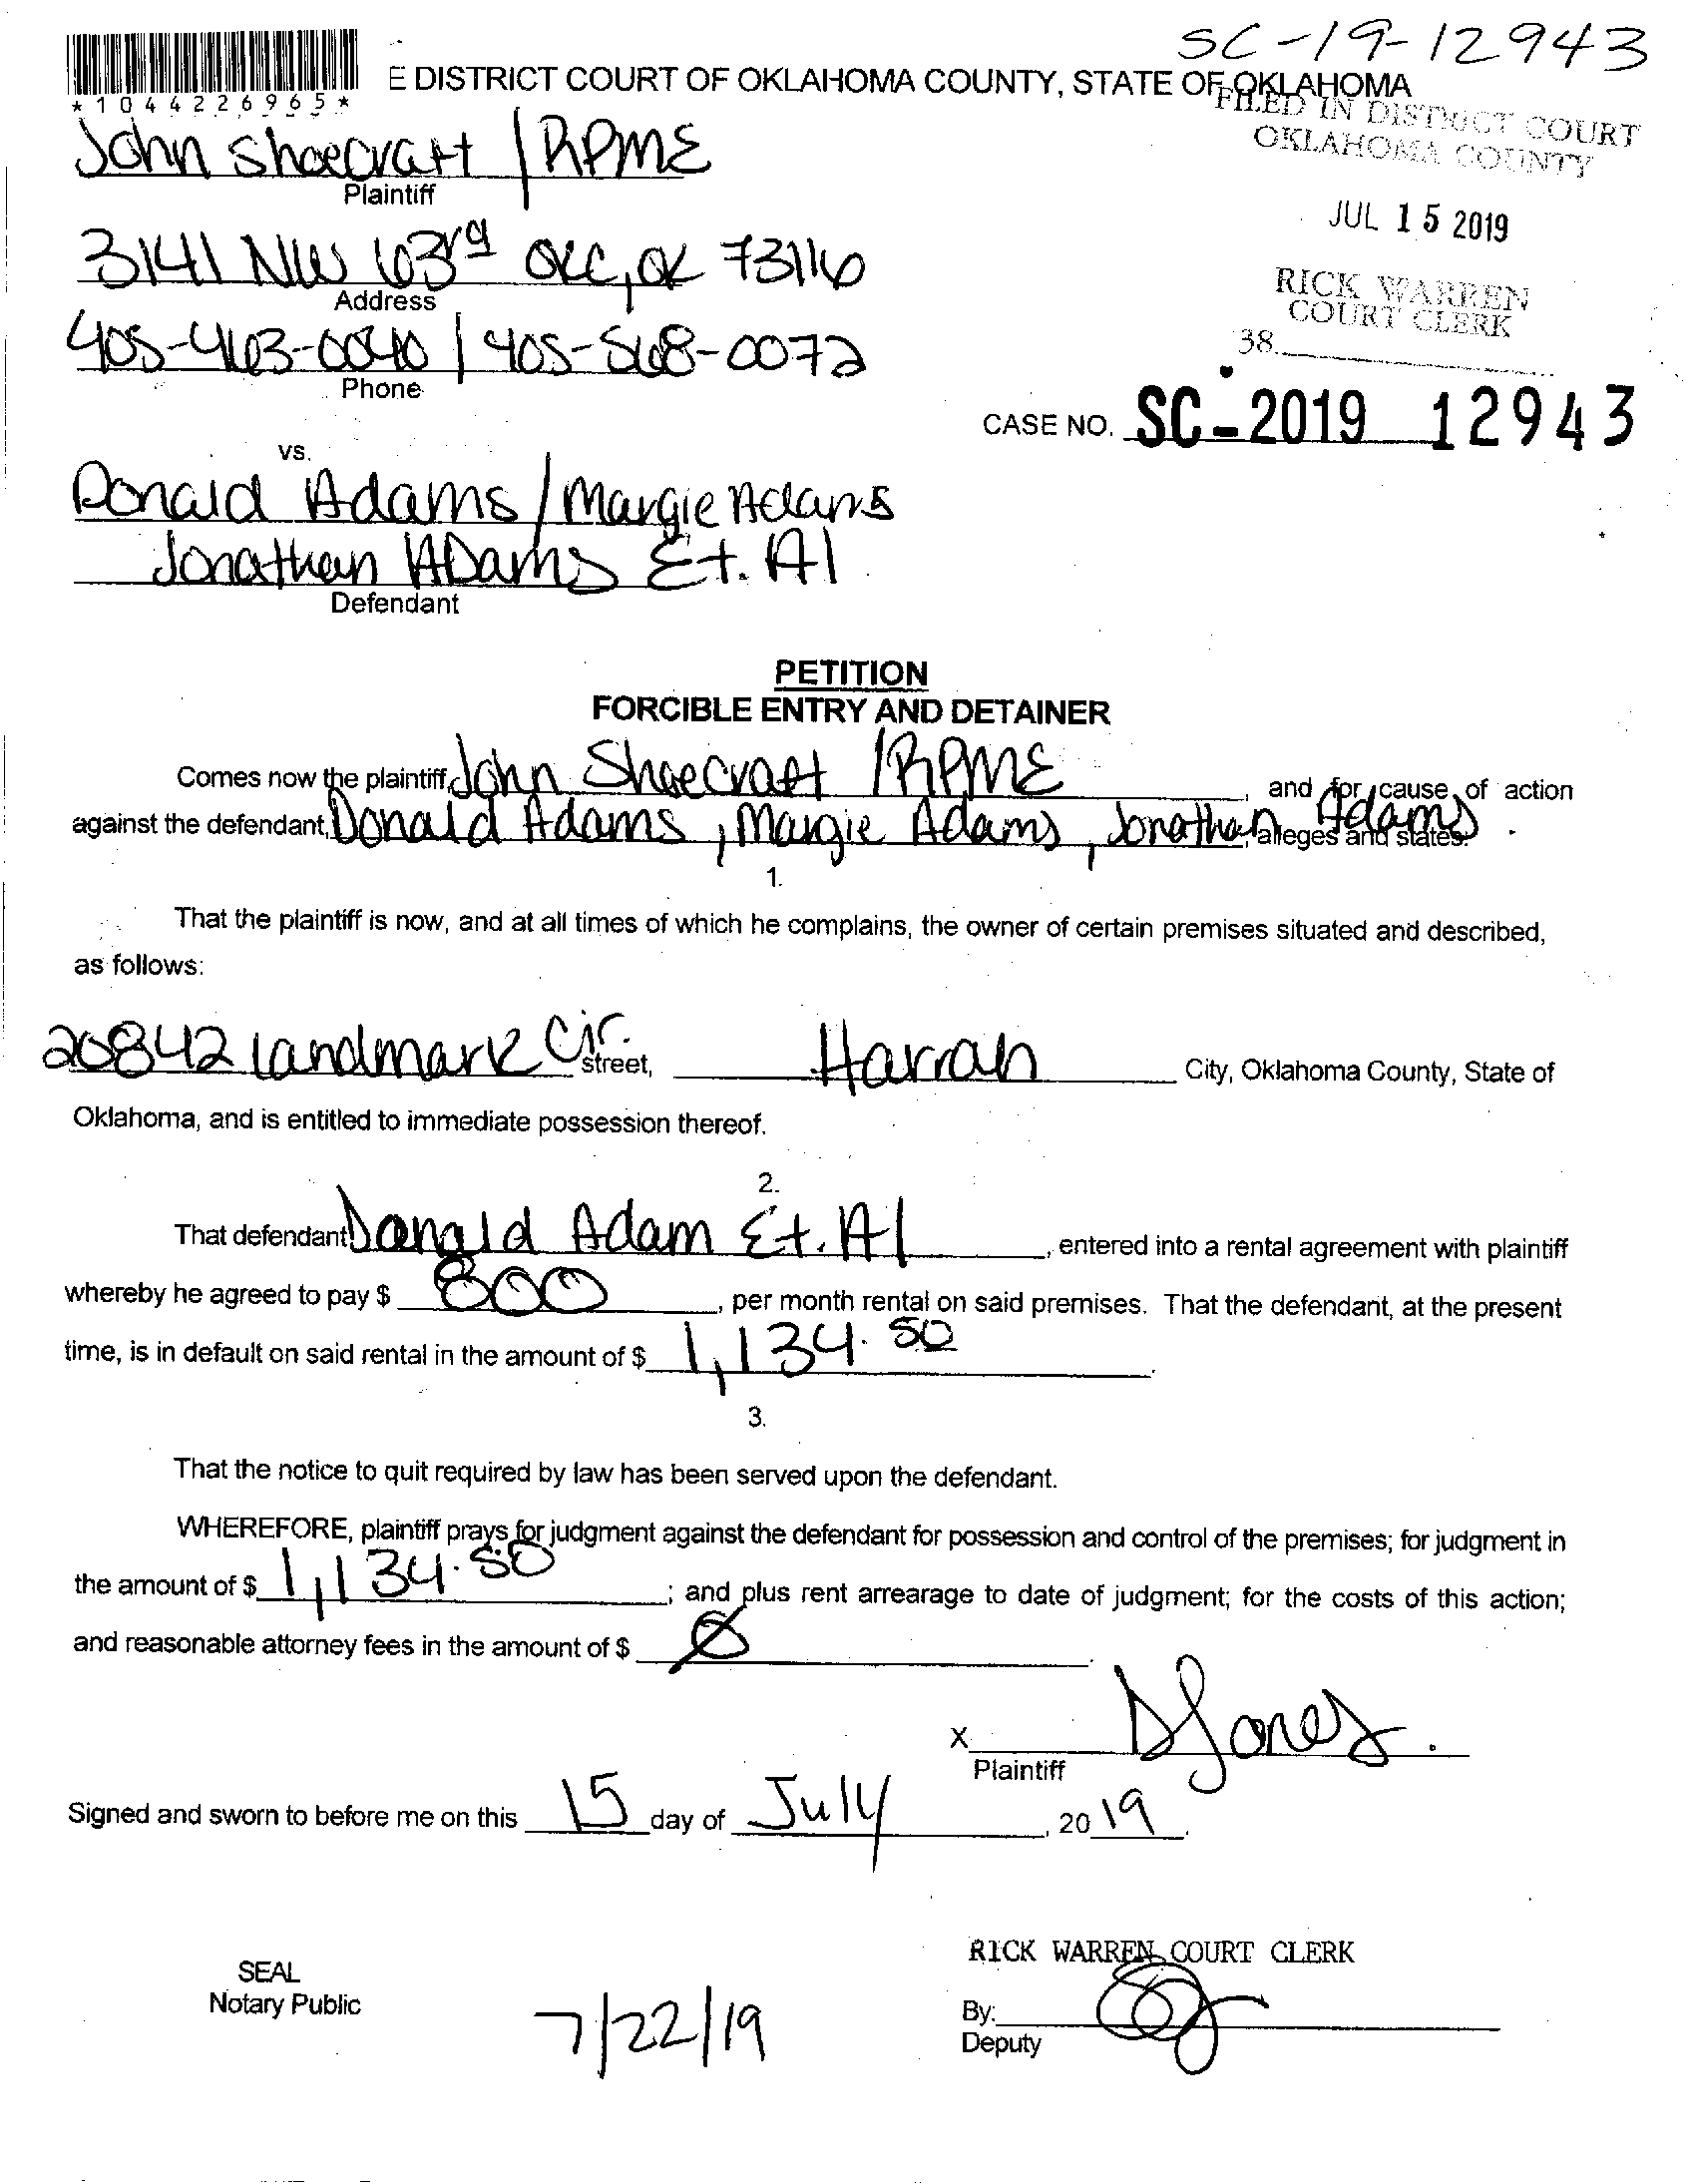 SC-19-12943
E DISTRICT COURT OF OKLAHOMA COUNTY, STATE OF OKLAHOMA
*1044226965*
FILED IN DISTRICT COURT
OKLAHOMA COUNTY
John Shoecraft / RPME
Plaintiff
JUL 15 2019
3141 NW 63rd OKC, OK 73116
Address
RICK WARREN
COURT CLERK
405-463-0040 / 405-568-0072
Phone
38
CASE NO. SC-2019 12943
vs.
Donald Adams / Margie Adams
Jonathan Adams Et. Al
Defendant
PETITION
FORCIBLE ENTRY AND DETAINER
Comes now the plaintiff, John Shoecraft / RPME, and for cause of action
against the defendant, Donald Adams, Margie Adams, Jonathan Adams, alleges and states:
1.
That the plaintiff is now, and at all times of which he complains, the owner of certain premises situated and described,
as follows:
20842 landmark Cir. street, Harrah City, Oklahoma County, State of
Oklahoma, and is entitled to immediate possession thereof.
2.
That defendant Donald Adam Et. Al, entered into a rental agreement with plaintiff
whereby he agreed to pay $ 800, per month rental on said premises. That the defendant, at the present
time, is in default on said rental in the amount of $ 1,134.50.
3.
That the notice to quit required by law has been served upon the defendant.
WHEREFORE, plaintiff prays for judgment against the defendant for possession and control of the premises; for judgment in
the amount of $ 1,134.50; and plus rent arrearage to date of judgment; for the costs of this action;
and reasonable attorney fees in the amount of $ Ø.
X DJones.
Plaintiff
Signed and sworn to before me on this 15 day of July, 2019.
RICK WARREN COURT CLERK
SEAL
Notary Public
7/22/19
By:
Deputy